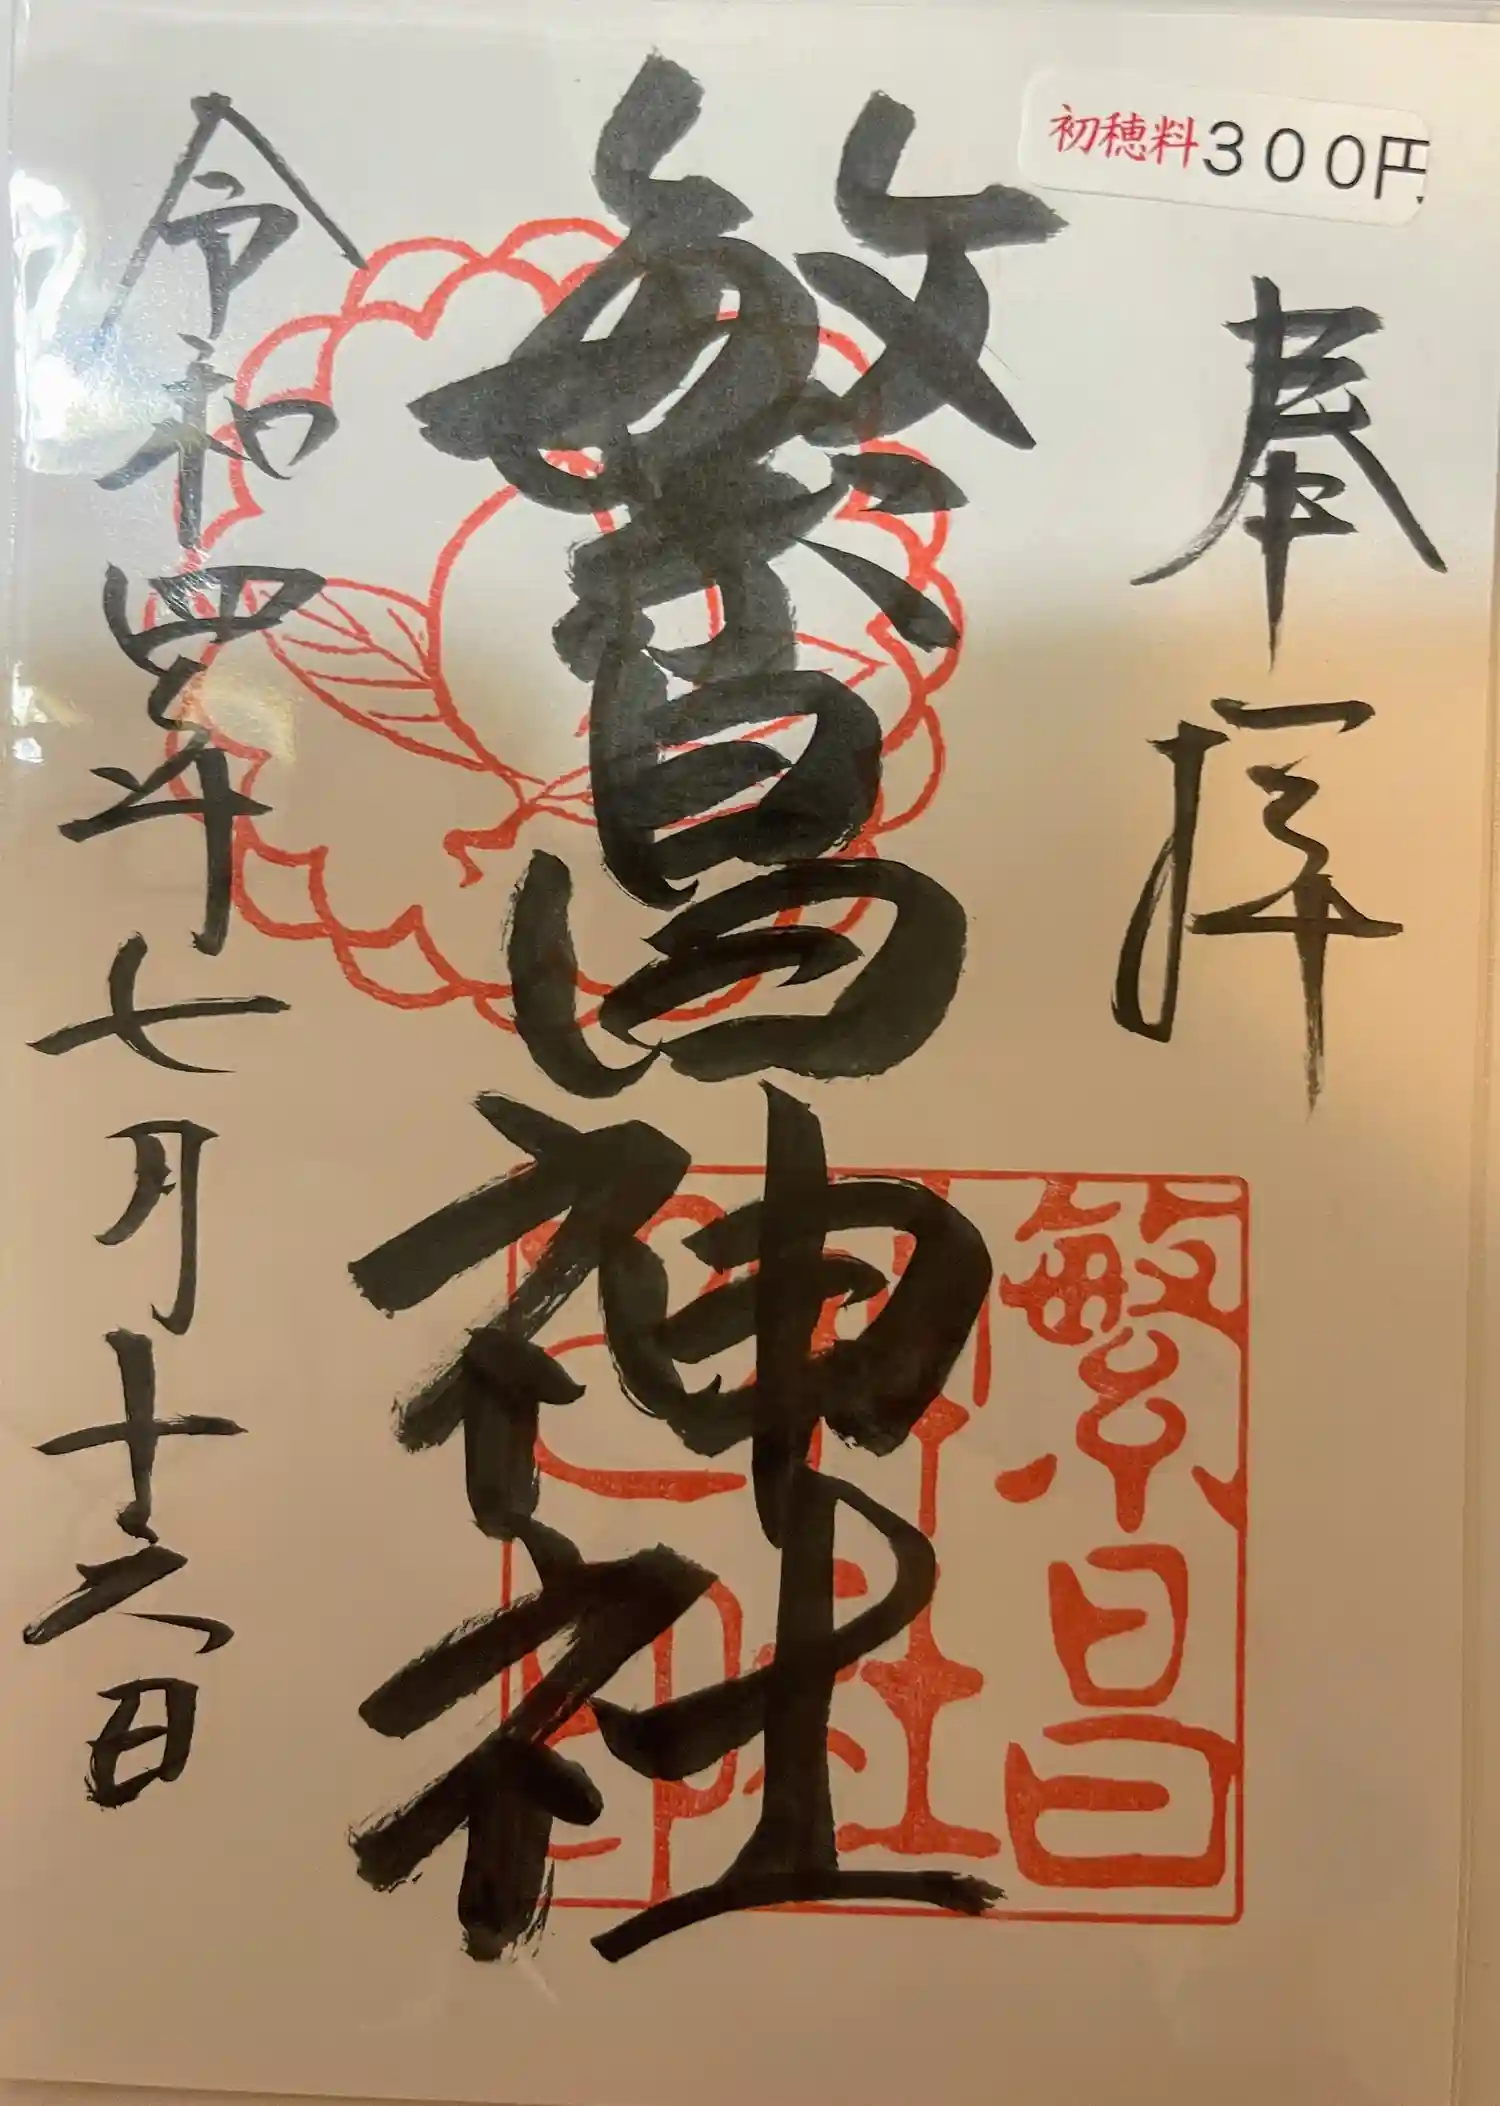 初穂料300円
奉拝
繁昌神社
繁昌
神社
令和四年七月十六日